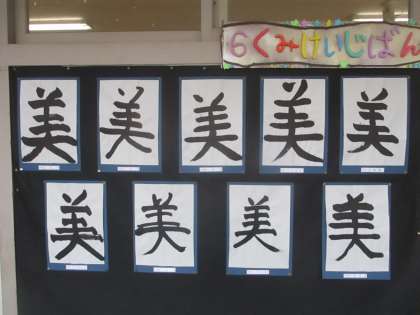 6くみけいじばん
美 美 美 美 美
美 美 美 美